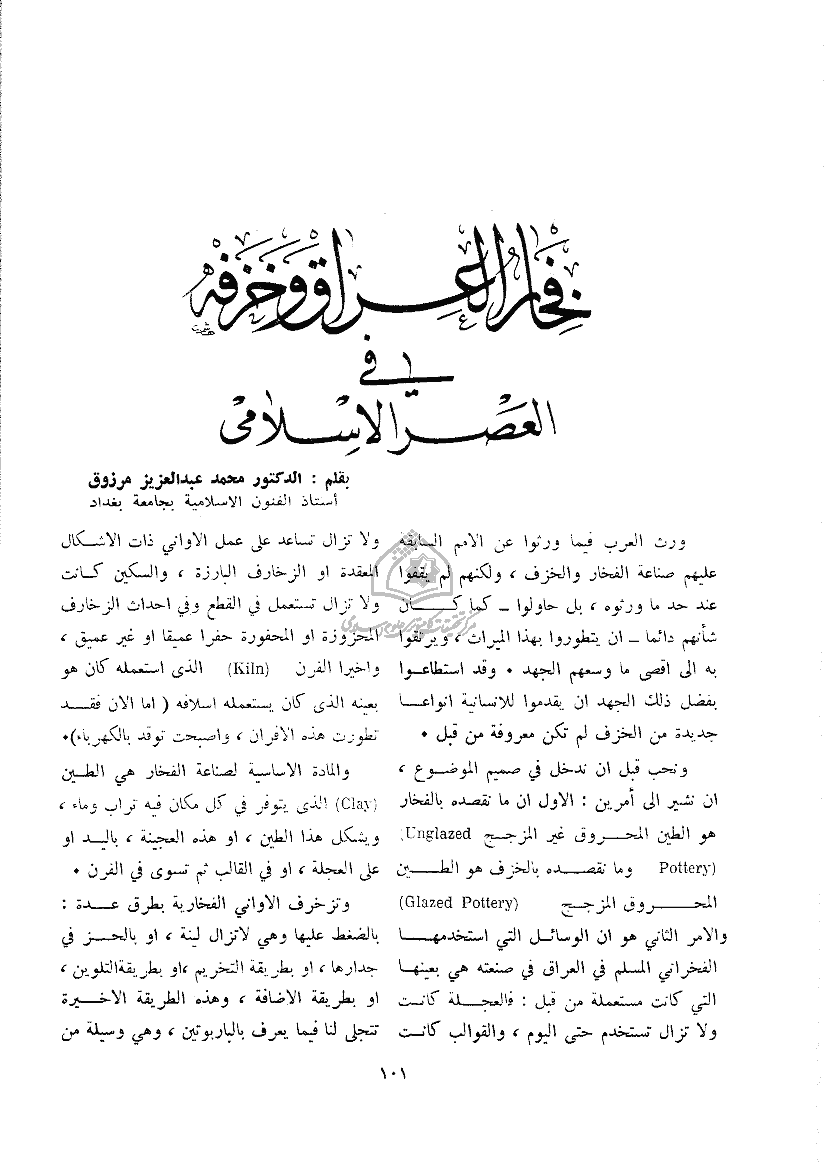 فخار العراق وخزفه
في
العصر الاسلامي
بقلم : الدكتور محمد عبدالعزيز مرزوق
أستاذ الفنون الاسلامية بجامعة بغداد
ورث العرب فيما ورثوا عن الامم السابقة
عليهم صناعة الفخار والخزف ، ولكنهم لم يقفوا
عند حد ما ورثوه ، بل حاولوا – كما كـــان
شأنهم دائما – ان يتطوروا بهذا الميراث ، ويرتقوا
به الى اقصى ما وسعهم الجهد ٠ وقد استطاعـوا
بفضل ذلك الجهد ان يقدموا للانسانية انواعـــا
جديدة من الخزف لم تكن معروفة من قبل ٠
ونحب قبل ان ندخل في صميم الموضـوع ،
ان نشير الى أمرين : الاول ان ما نقصده بالفخار
هو الطين المحـروق غير المزجـج Unglazed)
(Pottery وما نقصـــده بالخزف هو الطـــين
المحـــــروق المزجـــج (Glazed Pottery)
والامر الثاني هو ان الوسائـل التي استخدمهـــا
الفخراني المسلم في العراق في صنعته هي بعينهــا
التي كانت مستعملة من قبل : فالعجـــلة كانــت
ولا تزال تستخدم حتى اليوم ، والقوالب كانــت
ولا تزال تساعد على عمل الاواني ذات الاشكال
المعقدة او الزخارف البارزة ، والسكين كــانت
ولا تزال تستعمل في القطع وفي احداث الزخارف
المحزوزة او المحفورة حفرا عميقا او غير عميق ،
واخيرا الفرن (Kiln) الذى استعمله كان هو
بعينه الذى كان يستعمله اسلافه ( اما الان فقـــد
تطورت هذه الافران ، واصبحت توقد بالكهرباء)٠
والمادة الاساسية لصناعة الفخار هي الطين
(Clay) الذى يتوفر في كل مكان فيه تراب وماء ،
ويشكل هذا الطين ، او هذه العجينة ، باليـد او
على العجلة ، او في القالب ثم تسوى في الفرن ٠
وتزخرف الاواني الفخارية بطرق عـــدة :
بالضغط عليها وهي لاتزال لينة ، او بالحـــز في
جدارها ، او بطريقة التخريم ،او بطريقةالتلوين ،
او بطريقة الاضافة ، وهذه الطريقة الاخـــيرة
تتجلى لنا فيما يعرف بالباربوتين ، وهي وسيلة من
١٠١